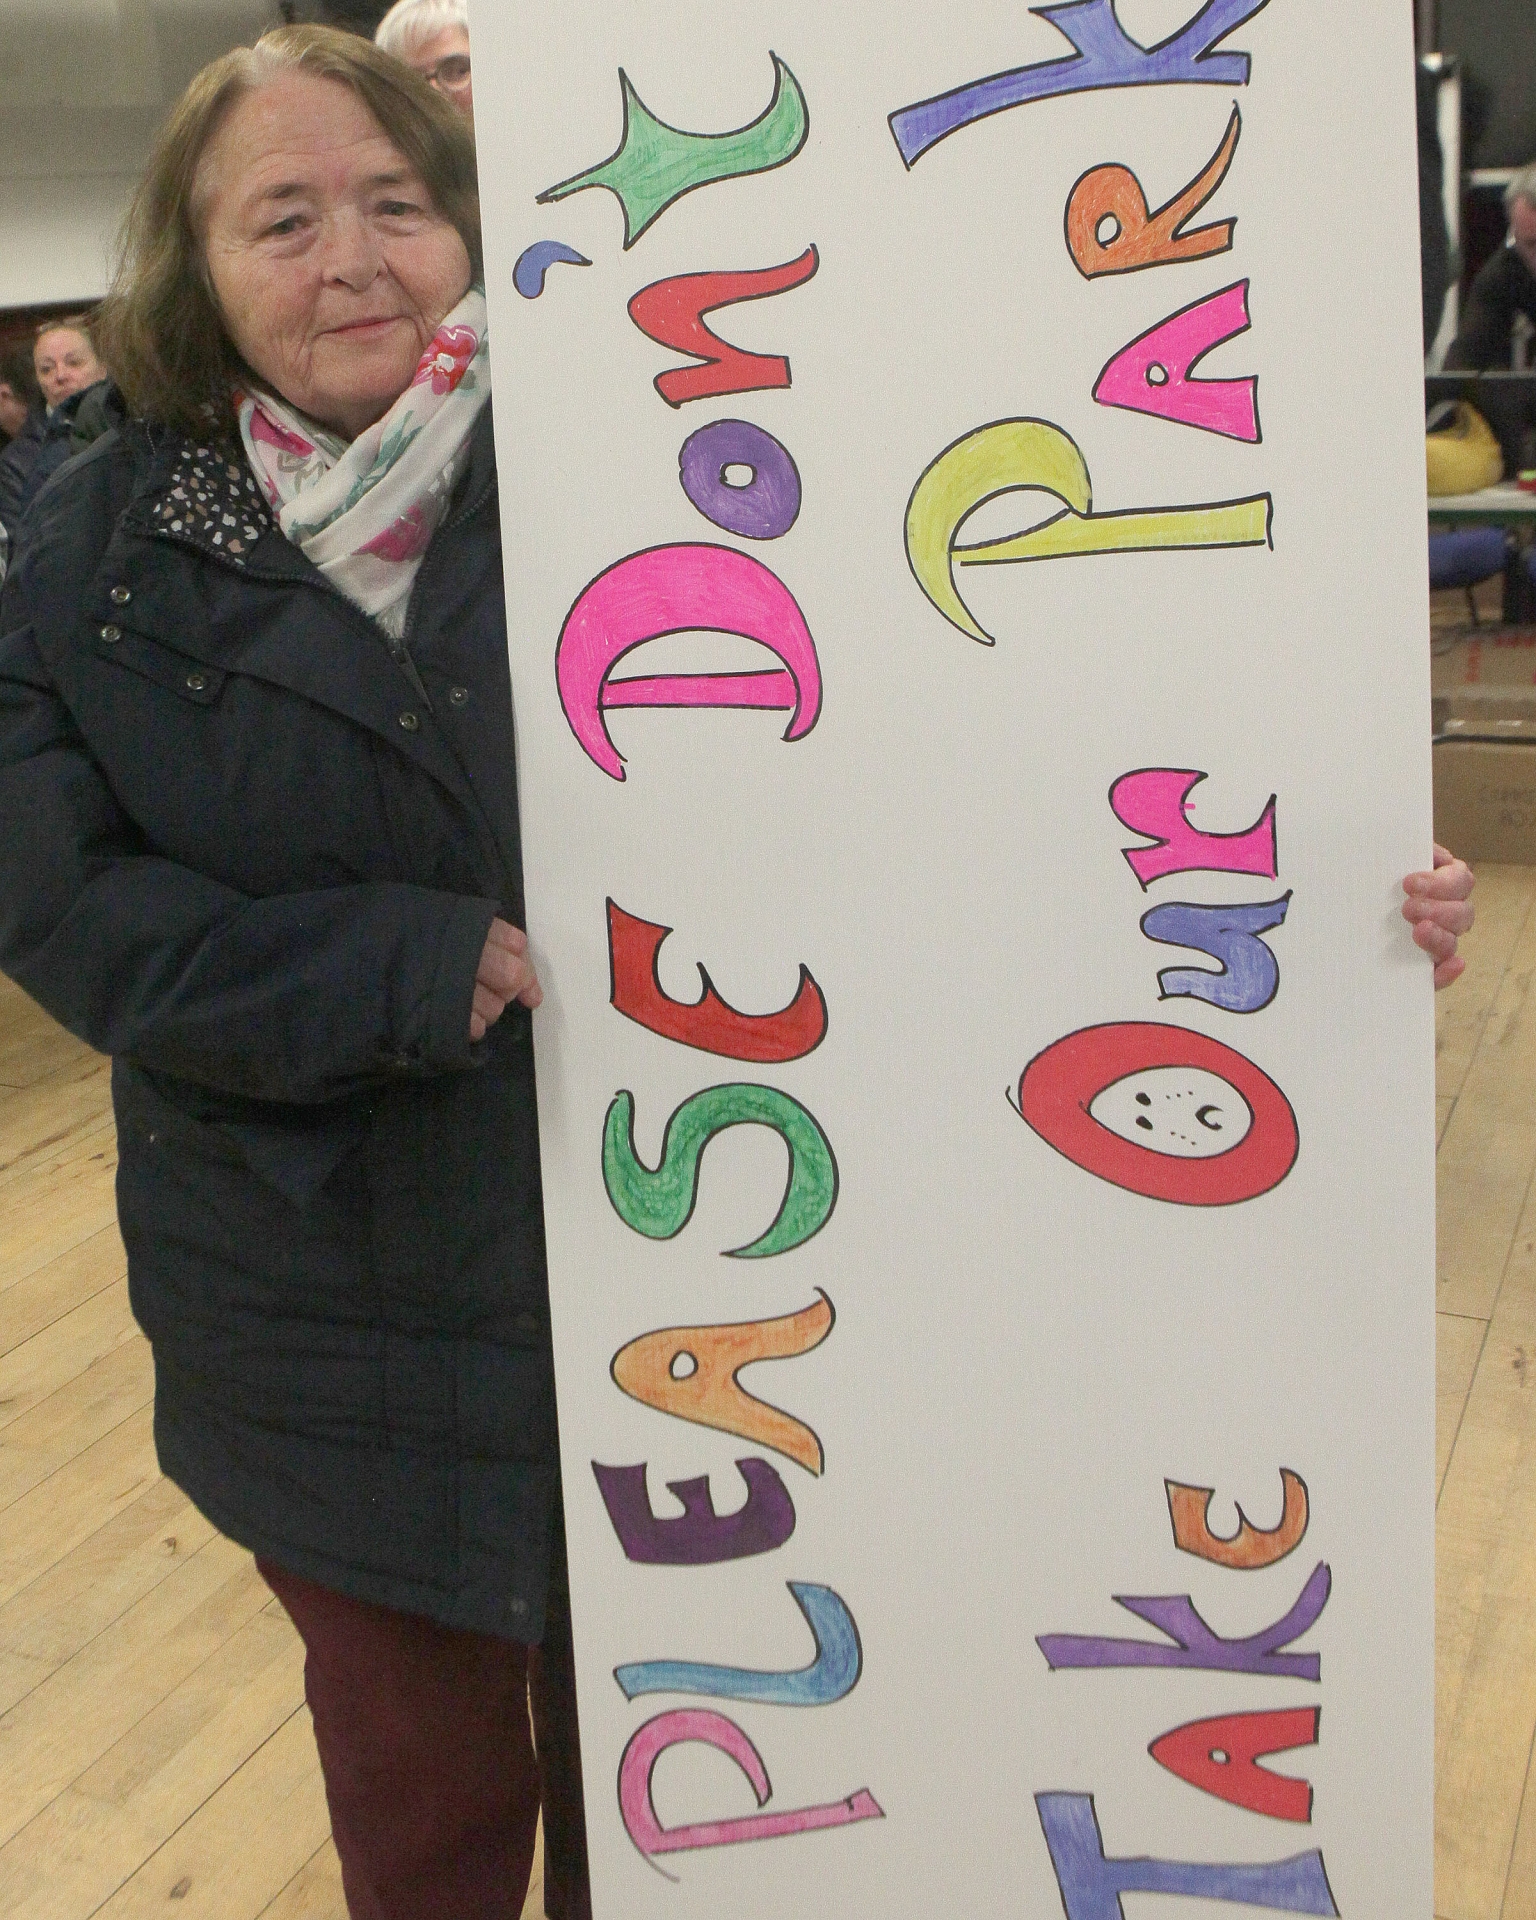 PLEASE Don't
TAKE Our PARK